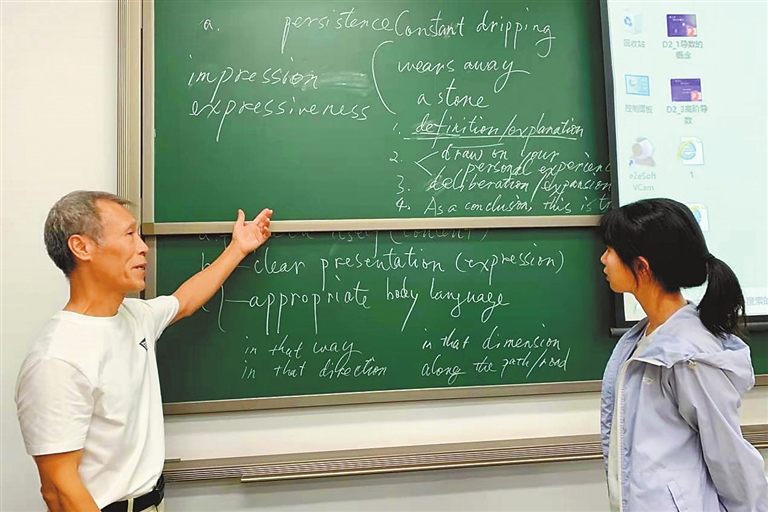 a. persistence Constant dripping
impression wears away
expressiveness a stone
1. definition/explanation
2. draw on your
personal experience
3. deliberation/expansion
4. As a conclusion, this is
(content)
b clear presentation (expression)
appropriate body language
in that way in that dimension
in that direction along the path/road
回收站 D2_1导数的
概念
控制面板
数
e2eSoft
VCam 1